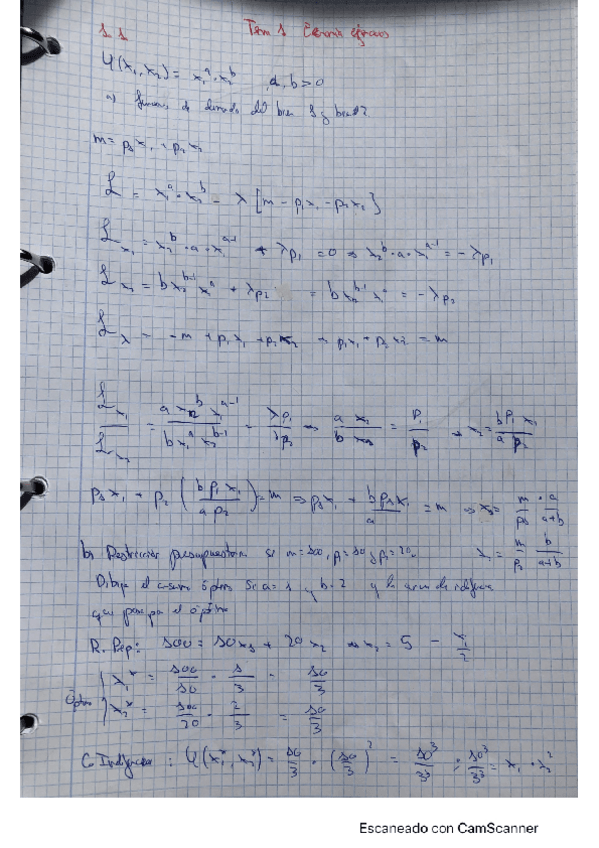 1.1 Tema 1
U(x₁,x₂) = x₁ᵃ·x₂ᵇ a,b>0
a) de del bien 1 y bien 2?
m = p₁x₁ + p₂x₂
L = x₁ᵃ·x₂ᵇ - λ [m - p₁x₁ - p₂x₂]
L_x₁ = x₂ᵇ·a·x₁ᵃ⁻¹ + λp₁ = 0 ⇒ x₂ᵇ·a·x₁ᵃ⁻¹ = -λp₁
L_x₂ = b x₂ᵇ⁻¹ x₁ᵃ + λp₂ = b x₂ᵇ⁻¹ x₁ᵃ = -λp₂
L_λ = -m + p₁x₁ + p₂x₂ → p₁x₁ + p₂x₂ = m
L_x₁/L_x₂ = a x₂ᵇ x₁ᵃ⁻¹ / b x₁ᵃ x₂ᵇ⁻¹ = λp₁/λp₂ ⇒ = p₁/p₂ → x₂ = b p₁ x₁ / a p₂
p₁x₁ + p₂ (b p₁ x₁ / a p₂) = m ⇒ p₁x₁ + b p₁ x₁ / a = m ⇒ x₁ = m/p₁ · a/a+b
b) Restricción presupuestaria si m=100, p₁=10 y p₂=20. = m/p₂ · b/a+b
Dibuja el óptimo si a=1 y b=2 y la de
que pasa por el óptimo
R. Pep: 100 = 10x₁ + 20x₂ ⇒ x₂ = 5 - x₁/2
Óptimo x₁* = 100/10 · 1/3 = 10/3
x₂* = 100/20 · 2/3 = 10/3
C. Indiferencia: U(x₁*,x₂*) = 10/3 · (10/3)² = 10³/3³ ; 10³/3³ = x₁·x₂²
Escaneado con CamScanner